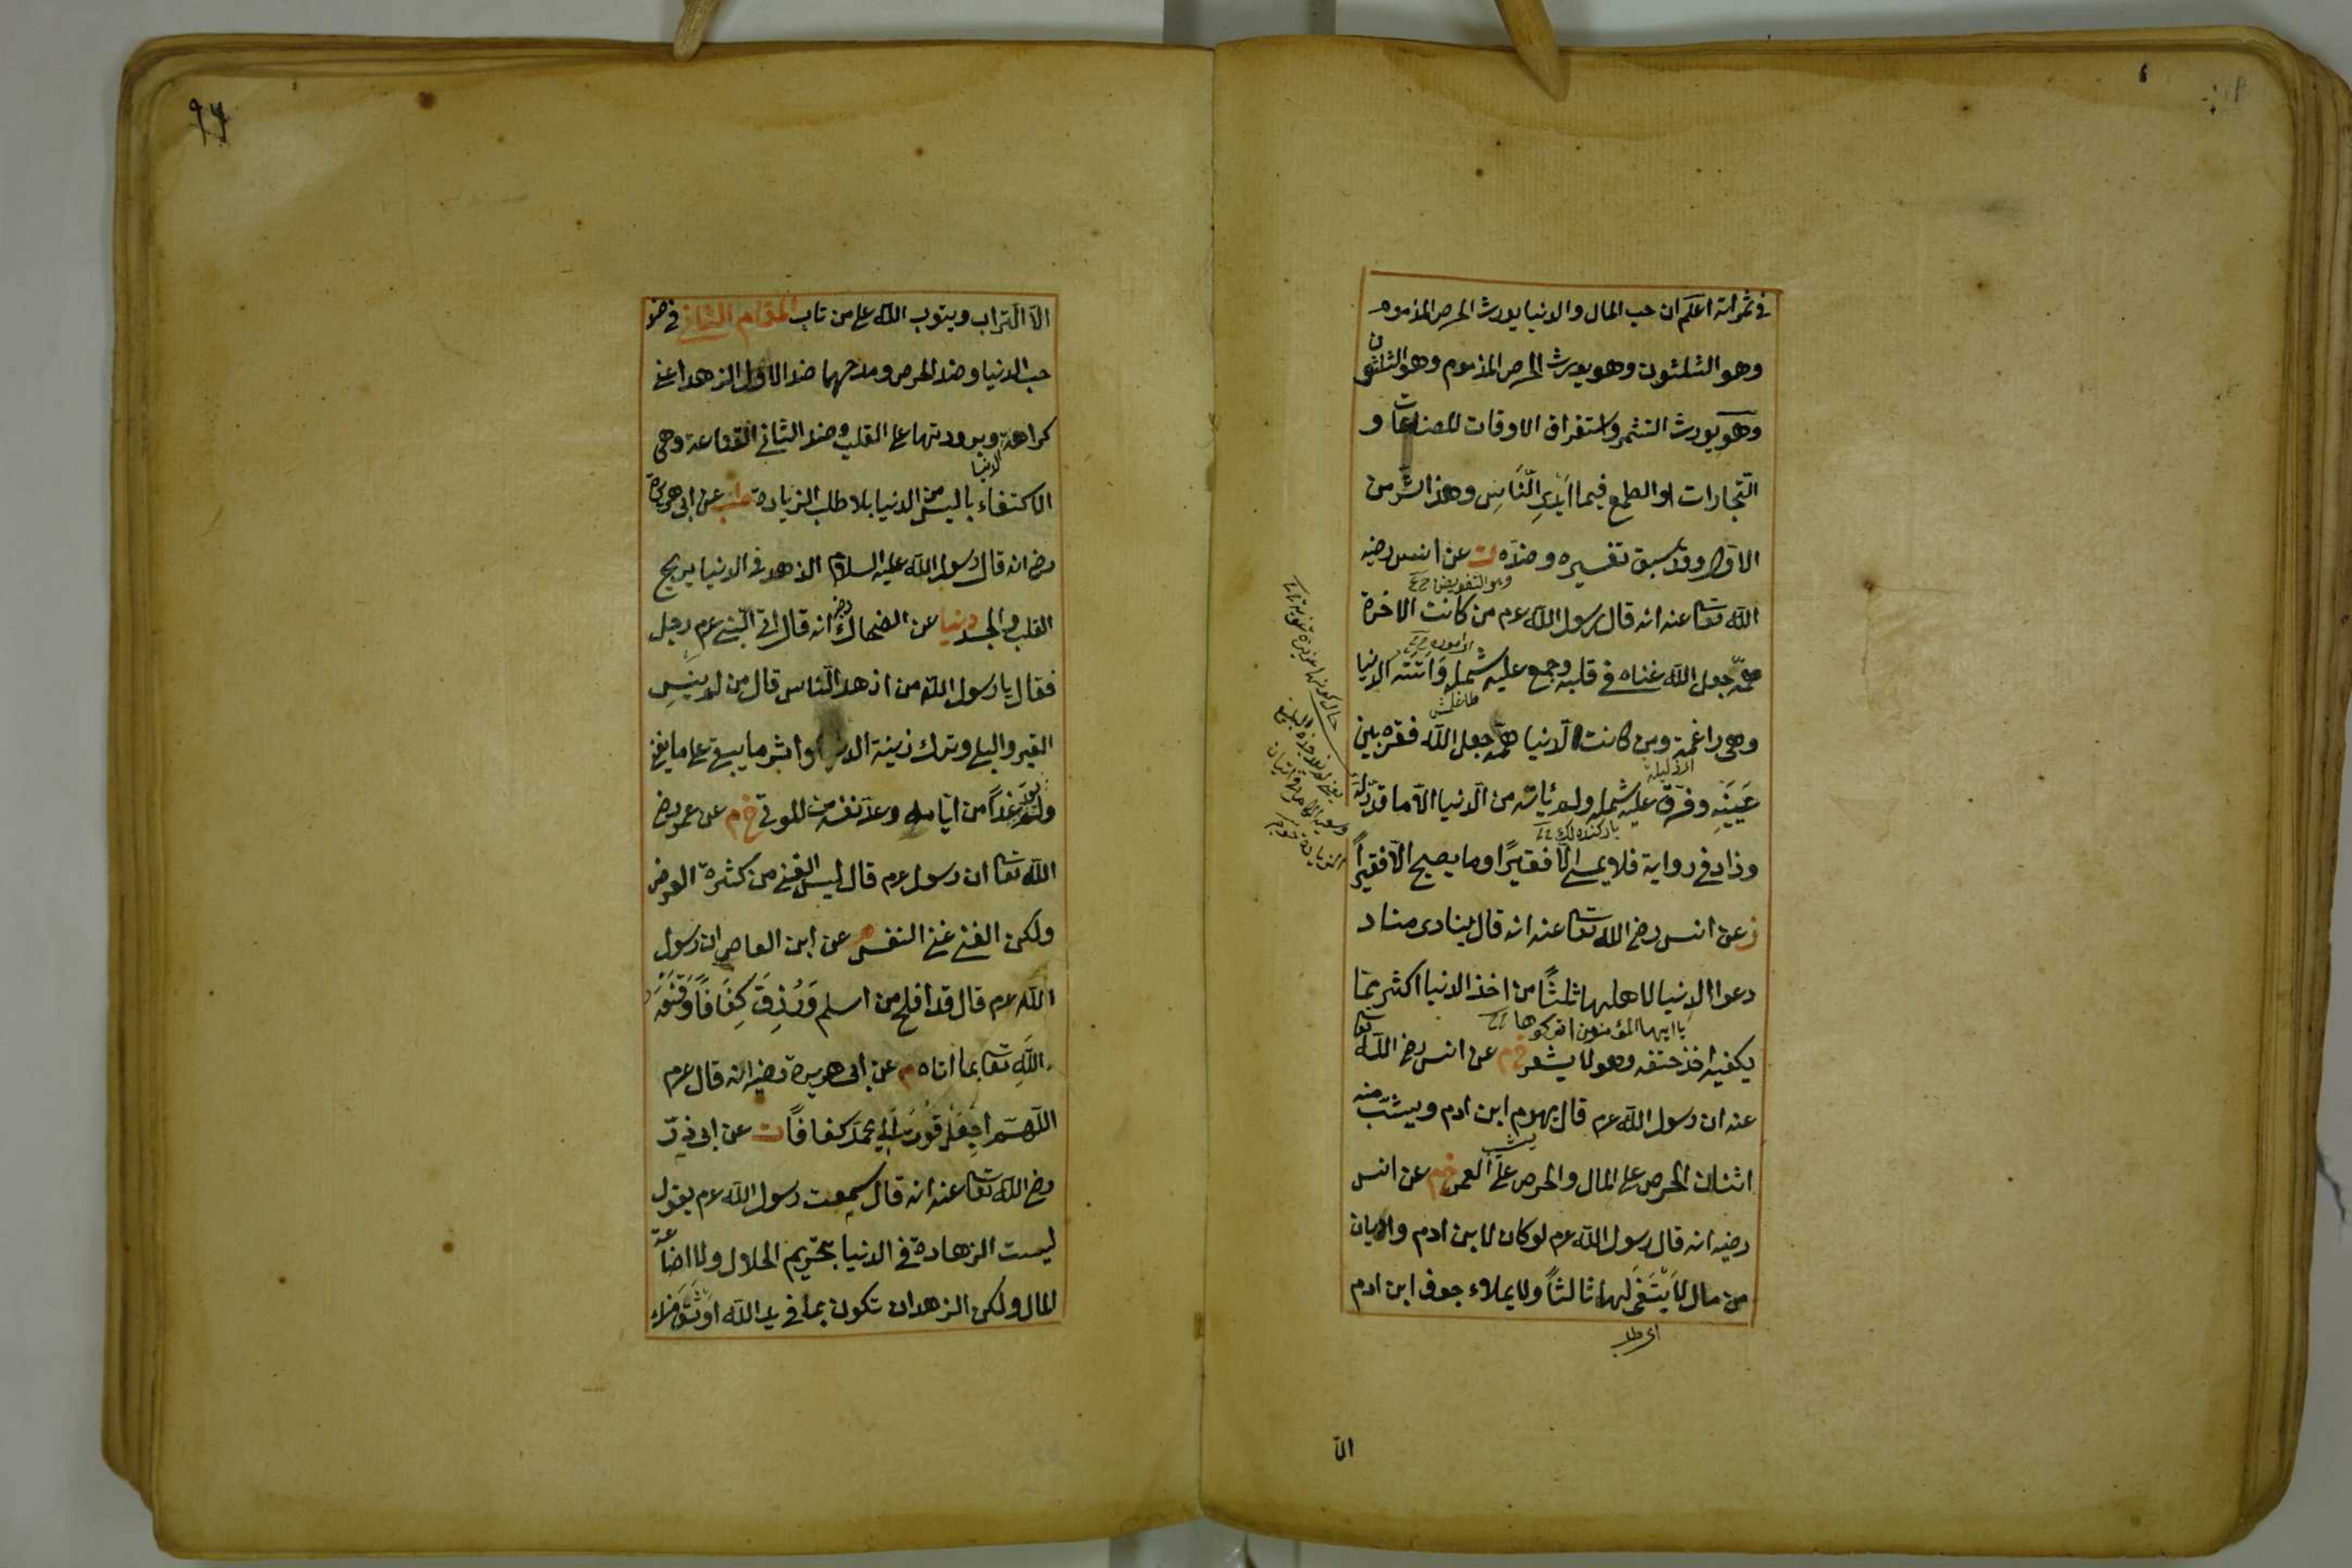 في ثمراته اعلم ان حب المال والدنيا يورث الحرص المذموم
وهو الثلثون وهو يورث الحرص المذموم وهو الثلثون
وهو يورث التشمر واستغراق الاوقات للصناعات و
التجارات او الطمع فيما ايدِ النّاسِ وهذا اشر من
الاول وقد سبق تفسيره وضدّه ت عن انس رضيه
وهو التفويض
الله تعا عنه انه قال رسول الله عم من كانت الاخرة
همّه جعل الله غناه في قلبه وجمع عليه شمله وَاتته الدنيا
وهي راغمة ومن كانت الدنيا همّه جعل الله فقره بين
الذليلة
عَينَيهِ وفرّق عليه شمله ولم ياته من الدنيا الّا ما قدّر له
وزاد في رواية فلا يمسي الّا فقيرًا وما يصبح الّا فقيراً
ز عن انس رضي الله تعا عنه انه قال ينادى مناد
دعوا الدنيا لاهلها ثلثًا من اخذ الدنيا اكثر ممّا
يا ايها المؤمنون اتركوها
يكفيه اخذ حتفه وهو لا يشعر خ م عن انس رضي الله تعا
عنه ان رسول الله عم قال يهرم ابن ادم ويشبّ منه
اثنان الحرص على المال والحرص على العمر خ م عن انس
رضيه انه قال رسول الله عم لو كان لابن ادم واديان
من مال لَابْتَغَى لهما ثالثاً ولا يملاء جوف ابن ادم
اى طلب
الّا
٩٦
الّا التراب ويتوب الله على من تاب المقام الثاني في ضد
حب الدنيا وضد الحرص ومدحهما ضد الاول الزهد اعني
كراهة وبرودتها على القلب وضد الثاني القناعة وهي
الدنيا
الاكتفاء باليسير من الدنيا بلا طلب الزيادة طب عن ابى هريرة
رض انه قال رسول الله عليه السلام الزهد في الدنيا يريح
القلب والجسد دنيا عن الضحاك رض انه قال اتى النّبي عم رجل
فقال يا رسول الله من ازهد الناس قال من لم ينسِ
القبر والبلى وترك زينة الدنيا واثر ما يبقى على ما يفنى
ولم يعد غداً من ايّامه وعدّ نفسه من الموتى خ م عن عمرو رض
الله تعا ان رسول عم قال ليس الغنى من كثرة العرض
ولكن الغنى غنى النفس م عن ابن العاص ان رسول
الله عم قال قد افلح من اسلم وَرُزِقَ كِفَافًا وَقَنَّعَهُ
الله تعا بما اتاه م عن ابى هريرة رضيه انه قال عم
اللّهمّ اجْعَلْ قُوتَ الِ محمّد كفافاً ت عن ابى ذرّ
رض الله تعا عنه انه قال سمعت رسول الله عم يقول
ليست الزهادة في الدنيا بتحريم الحلال ولا اضاعة
المال ولكن الزهد ان تكون بما في يد الله اَوْثَقَ منك